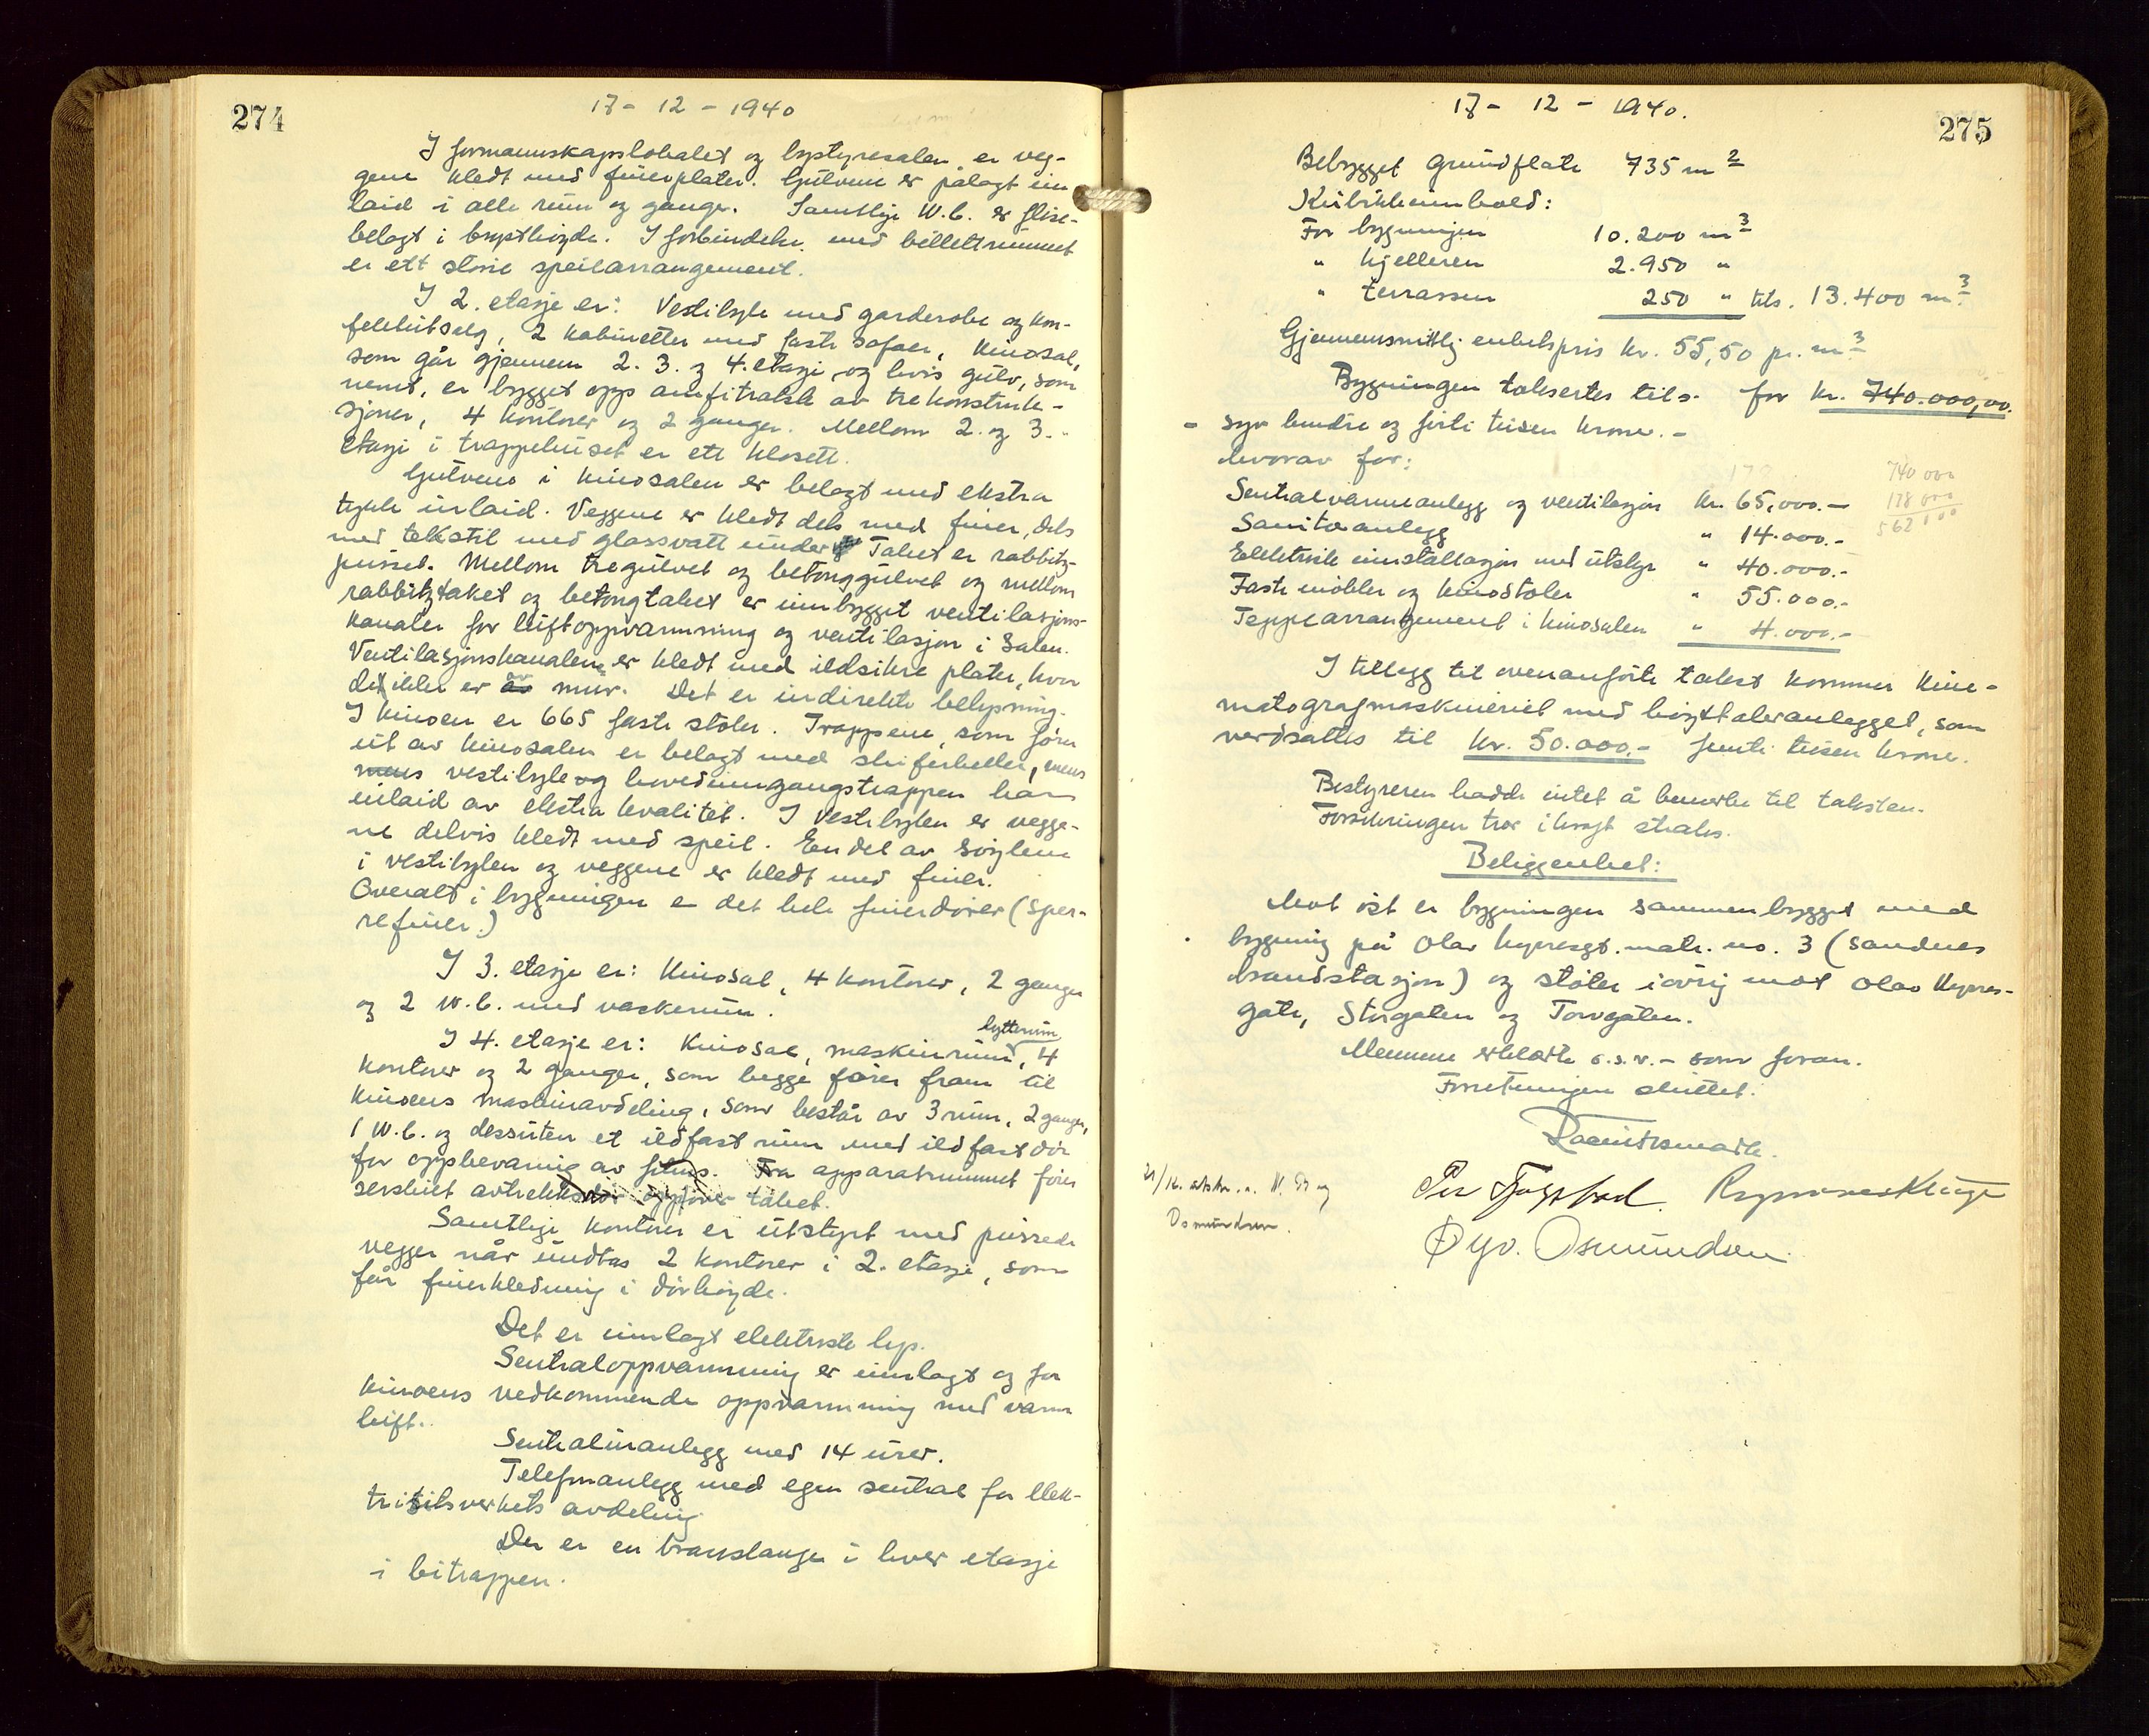 274
17 - 12 - 1940
I formannskapslokalet og bystyresalen er veg-
gene kledt med finerplater. Gulvene er pålagt in
laid i alle rum og ganger. Samtlige W.C. er flise-
belagt i brysthøyde. I forbindelse med billettrummet
er ett större speilarrangement.
I 2. etasje er: Vestibyle med garderobe og kon-
fektutsalg, 2 kabinetter med faste sofaer, kinosal,
som går gjennem 2. 3. og 4. etasje og hvis gulv, som
nemt, er bygget opp amfitralsk av trekonstruk-
sjoner, 4 kontorer og 2 ganger. Mellom 2. og 3.
etasje i trappehuset er ett klosett.
Gulvene i kinosalen er belagt med ekstra
tykk inlaid. Veggene er kledt dels med finer, dels
med tekstil med glassvatt under. Taket er rabbitz-
pusset. Mellom tregulvet og betonggulvet og mellom
rabbitztaket og betongtaket er innbygget ventilasjons-
kanaler for luftoppvarmning og ventilasjon i salen.
Ventilasjonskanalene er kledt med ildsikre plater, hvor
det ikke er av mur. Det er indirekte belysning.
I kinoen er 665 faste stoler. Trappene, som förer
ut av kinosalen er belagt med skiferheller, mens
vestibyle og hovedinngangstrappen har
inlaid av ekstra kvalitet. I vestibylen er vegge-
ne delvis kledt med speil. En del av søylene
i vestibylen og veggene er kledt med finer.
Overalt i bygningen er det hele finerdörer (sper-
refiner.)
I 3. etasje er: Kinosal, 4 kontorer, 2 ganger
og 2 W.C. med vaskerum.
lytterum
I 4. etasje er: Kinosal, maskinrum, 4
kontorer og 2 ganger, som begge förer fram til
kinoens maskinavdeling, som består av 3 rum, 2 ganger,
1 W.C. og dessuten et ildfast rum med ildfast dör
for oppbevaring av films. Fra apparatrummet förer
serskilt avtrekksrör opp over taket.
Samtlige kontorer er utstyrt med pussede
vegger når undtas 2 kontorer i 2. etasje, som
får finerkledning i dörhöyde.
Det er innlagt elektrisk lys.
Sentraloppvarmning er innlagt og for
kinoens vedkommende oppvarmning med varm
luft.
Sentraluranlegg med 14 urer.
Telefonanlegg med egen sentral for elek-
trisitsverkets avdeling.
Der er en branslange i hver etasje
i bitrappen.
17 - 12 - 1940.
275
Bebygget grundflate 735 m2
Kubikkinnhold:
For bygningen 10.200 m3
" kjelleren 2.950 "
" terrassen 250 " tils. 13.400 m3
Gjennemsnittlig enhetspris kr. 55,50 pr. m3
Bygningen taksertes tils. for kr. 740.000,00.
- syv hundre og förti tusen kroner. -
hvorav for:
740 000
178 000
562 000
Sentralvarmeanlegg og ventilasjon kr. 65,000.-
Sanitæranlegg " 14.000.-
Elektrisk installasjon med utstyr " 40.000.-
Faste möbler og kinostoler " 55.000.-
Teppearrangement i kinosalen " 4.000.-
I tillegg til ovenanförte takst kommer kine-
matografmaskineriet med höyttaleranlegget, som
verdsattes til kr. 50.000.- femti tusen kroner.
Bestyreren hadde intet å bemerke til taksten.
Forsikringen trær i kraft straks.
Beliggenhet:
Mot öst er bygningen sammenbygget med
bygning på Olav Kyrresgt. matr. no. 3 (Sandnes
brandstasjon) og stöter iövrig mot Olav Kyrres-
gate, Storgaten og Torvgaten.
Mennene erklærte o.s.v. - som foran.
Forretningen sluttet.
21/12. utskr. 
Osmundsen.
Øyv. Osmundsen.